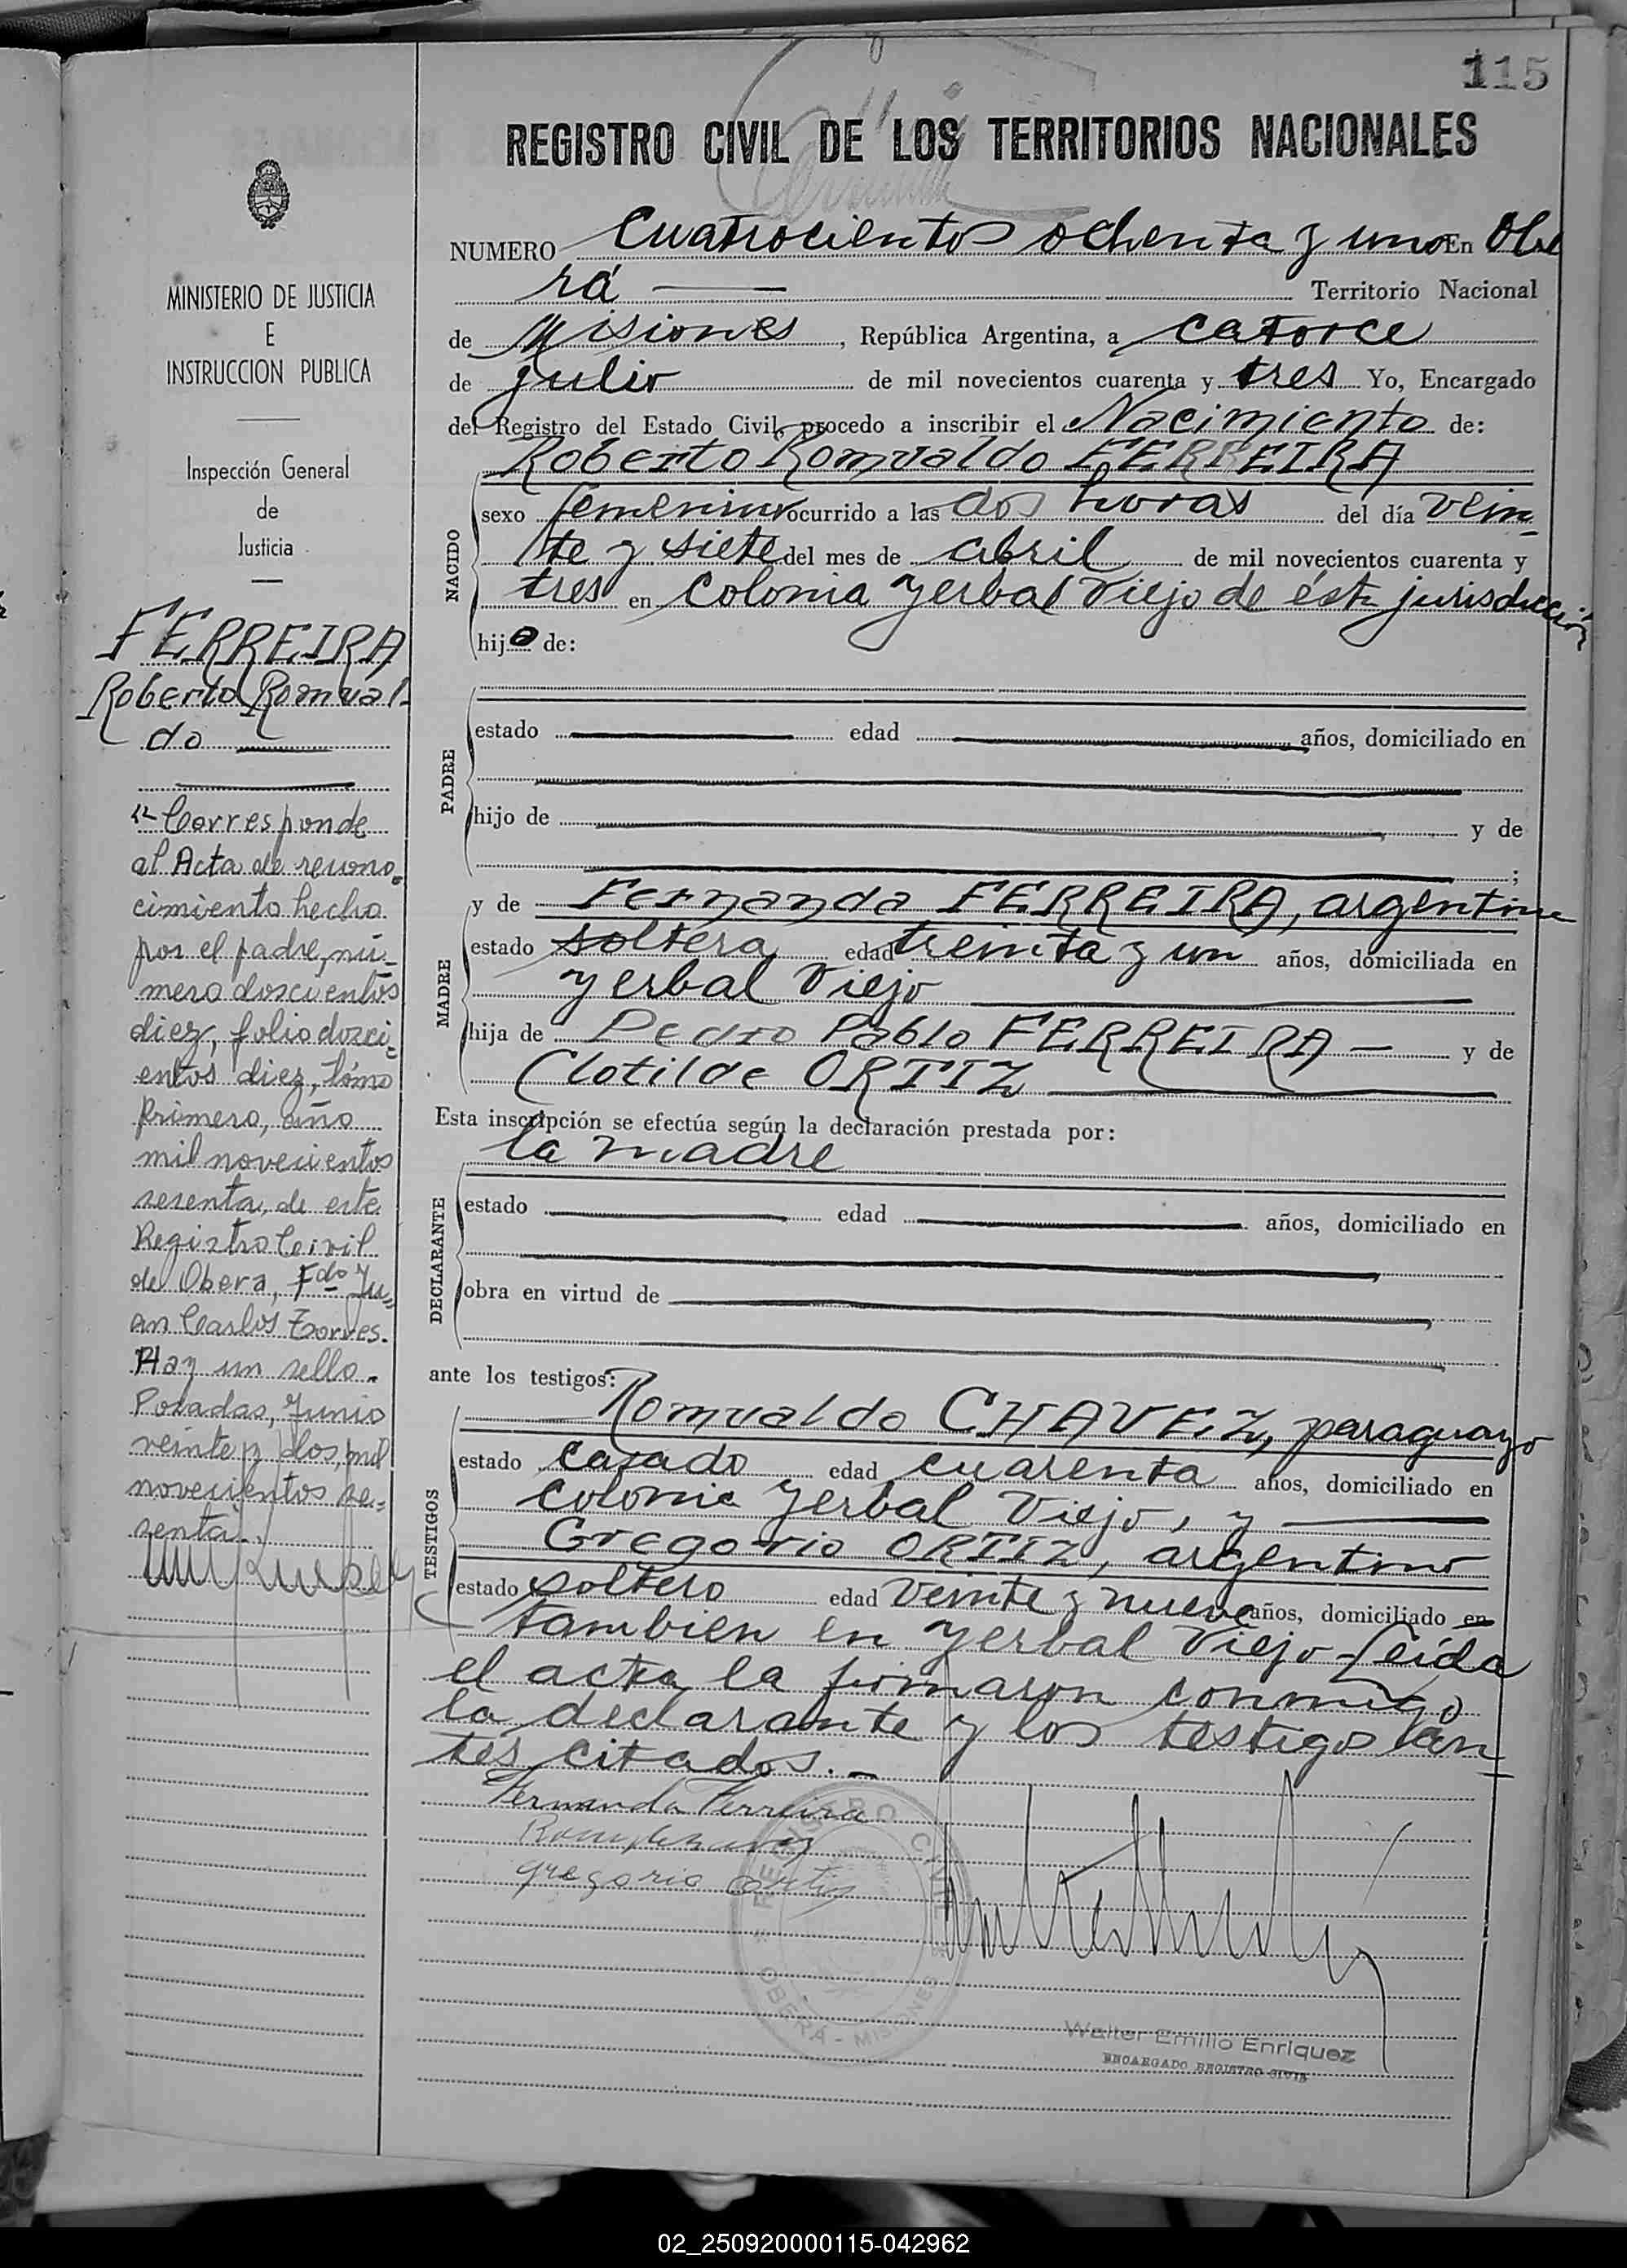 115
REGISTRO CIVIL DE LOS TERRITORIOS NACIONALES
NUMERO Cuatrocientos ochenta y uno En Obe
rá Territorio Nacional
de Misiones, República Argentina, a catorce
de julio de mil novecientos cuarenta y tres Yo, Encargado
del Registro del Estado Civil, procedo a inscribir el Nacimiento de:
Roberto Romualdo FERREIRA
NACIDO
sexo femenino ocurrido a las dos horas del día vein
te y siete del mes de abril de mil novecientos cuarenta y
tres en colonia Yerbal Viejo de ésta jurisdicción
hijo de:
PADRE
estado edad años, domiciliado en
hijo de y de
;
MADRE
y de Fernanda FERREIRA, argentina
estado soltera edad treinta y un años, domiciliada en
Yerbal Viejo
hija de Pedro Pablo FERREIRA — y de
Clotilde ORTIZ
Esta inscripción se efectúa según la declaración prestada por:
la madre
DECLARANTE
estado edad años, domiciliado en
obra en virtud de
ante los testigos:
TESTIGOS
Romualdo CHAVEZ, paraguayo
estado casado edad cuarenta años, domiciliado en
colonia Yerbal Viejo, y
Gregorio ORTIZ, argentino
estado soltero edad veinte y nueve años, domiciliado en
tambien en Yerbal Viejo - Leída
el acta la firmaron conmigo
la declarante y los testigos an
tes citados. -
Fernanda Ferreira
gregorio ortis
REGISTRO CIVIL
OBERA - MISIONES
Walter Emilio Enriquez
ENCARGADO REGISTRO CIVIL
MINISTERIO DE JUSTICIA
E
INSTRUCCION PUBLICA
Inspección General
de
Justicia
FERREIRA
Roberto Romual-
do
"Corresponde
al Acta de recono-
cimiento hecho
por el padre, nú-
mero doscientos
diez, folio dosci-
entos diez, tómo
primero, año
mil novecientos
sesenta, de este
Registro Civil
de Obera, Fdo Ju-
an Carlos Torres.
Hay un sello.
Posadas, Junio
veinte y dos, mil
novecientos se-
senta.
02_250920000115-042962